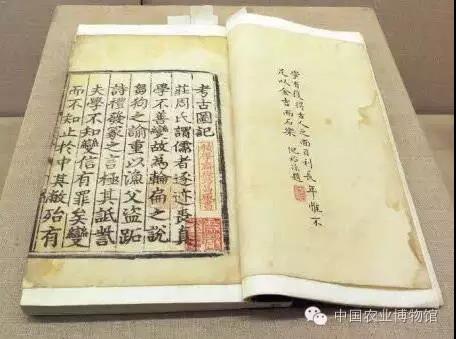 學有獲得古人之面目利長年惟不
足以金吉而石樂
題
考古圖記
莊周氏謂儒者逐迹喪真
學不善變故為輪扁之說
芻狗之諭重以漁父盜跖
詩禮發冢之言極其詆訾
夫學不知變信有罪矣變
而不知止於中其敝殆有
中国农业博物馆